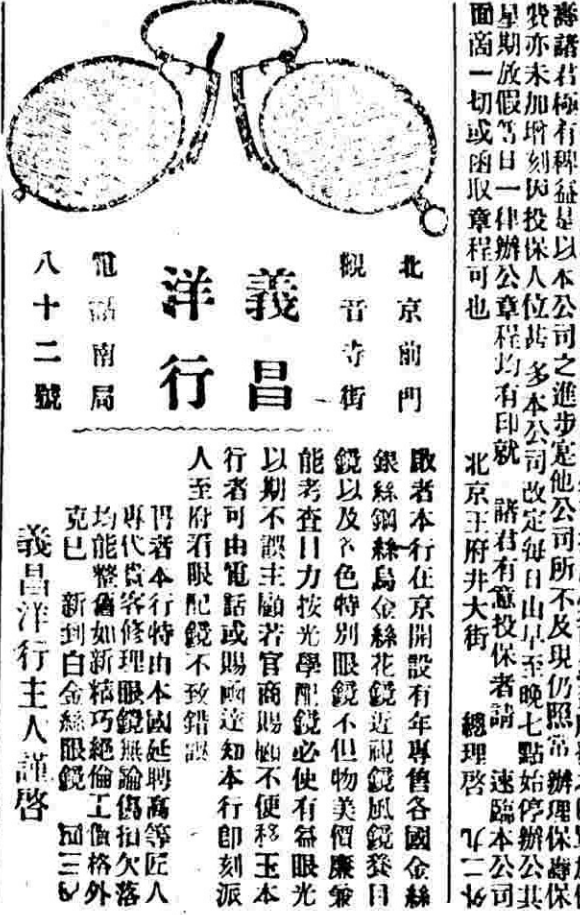 壽諸君極有裨益是以本公司之進步寔他公司所不及現仍照常辦理保壽保
費亦未加增刻因投保人位甚多本公司改定每日由早至晚七點始停辦公其
星期放假等日一律辦公章程均有印就 諸君有意投保者請 速臨本公司
面商一切或函取章程可也 北京王府井大街 總理啓 九二外
北京前門
觀音寺街
義昌
洋行
電話南局
八十二號
敬者本行在京開設有年專售各國金絲
銀絲鋼絲烏金絲花鏡近視鏡風鏡養目
鏡以及各色特別眼鏡不但物美價廉兼
能考查目力按光學配鏡必使有益眼光
以期不誤主顧若官商賜顧不便移玉本
行者可由電話或賜函達知本行即刻派
人至府看眼配鏡不致錯誤
再者本行特由本國延聘高等匠人
專代貴客修理眼鏡無論傷損欠落
均能整舊如新精巧絕倫工價格外
克己 新到白金絲眼鏡
義昌洋行主人謹啓